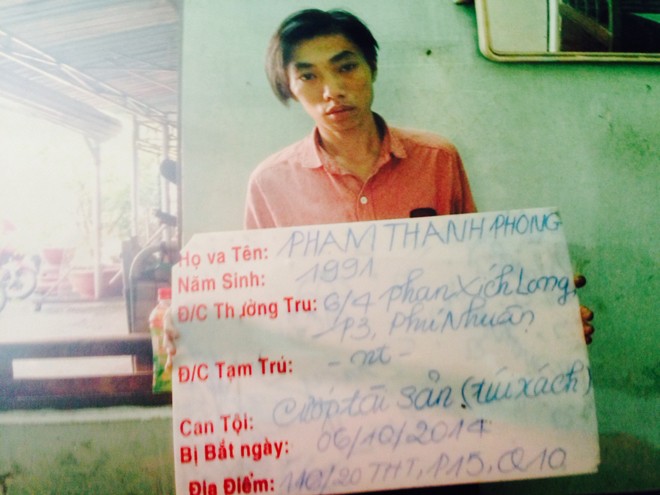 Họ va Tên: PHAM THANH PHONG
Năm Sinh: 1991
Đ/C Thường Tru: 6/4 Phan Xích Long
P3, Phú Nhuận
Đ/C Tạm Trú: - nt -
Can Tội: Cướp tài sản (túi xách)
Bị Bắt ngày: 06/10/2014
Địa Điểm: 110/20 THT, P15, Q10